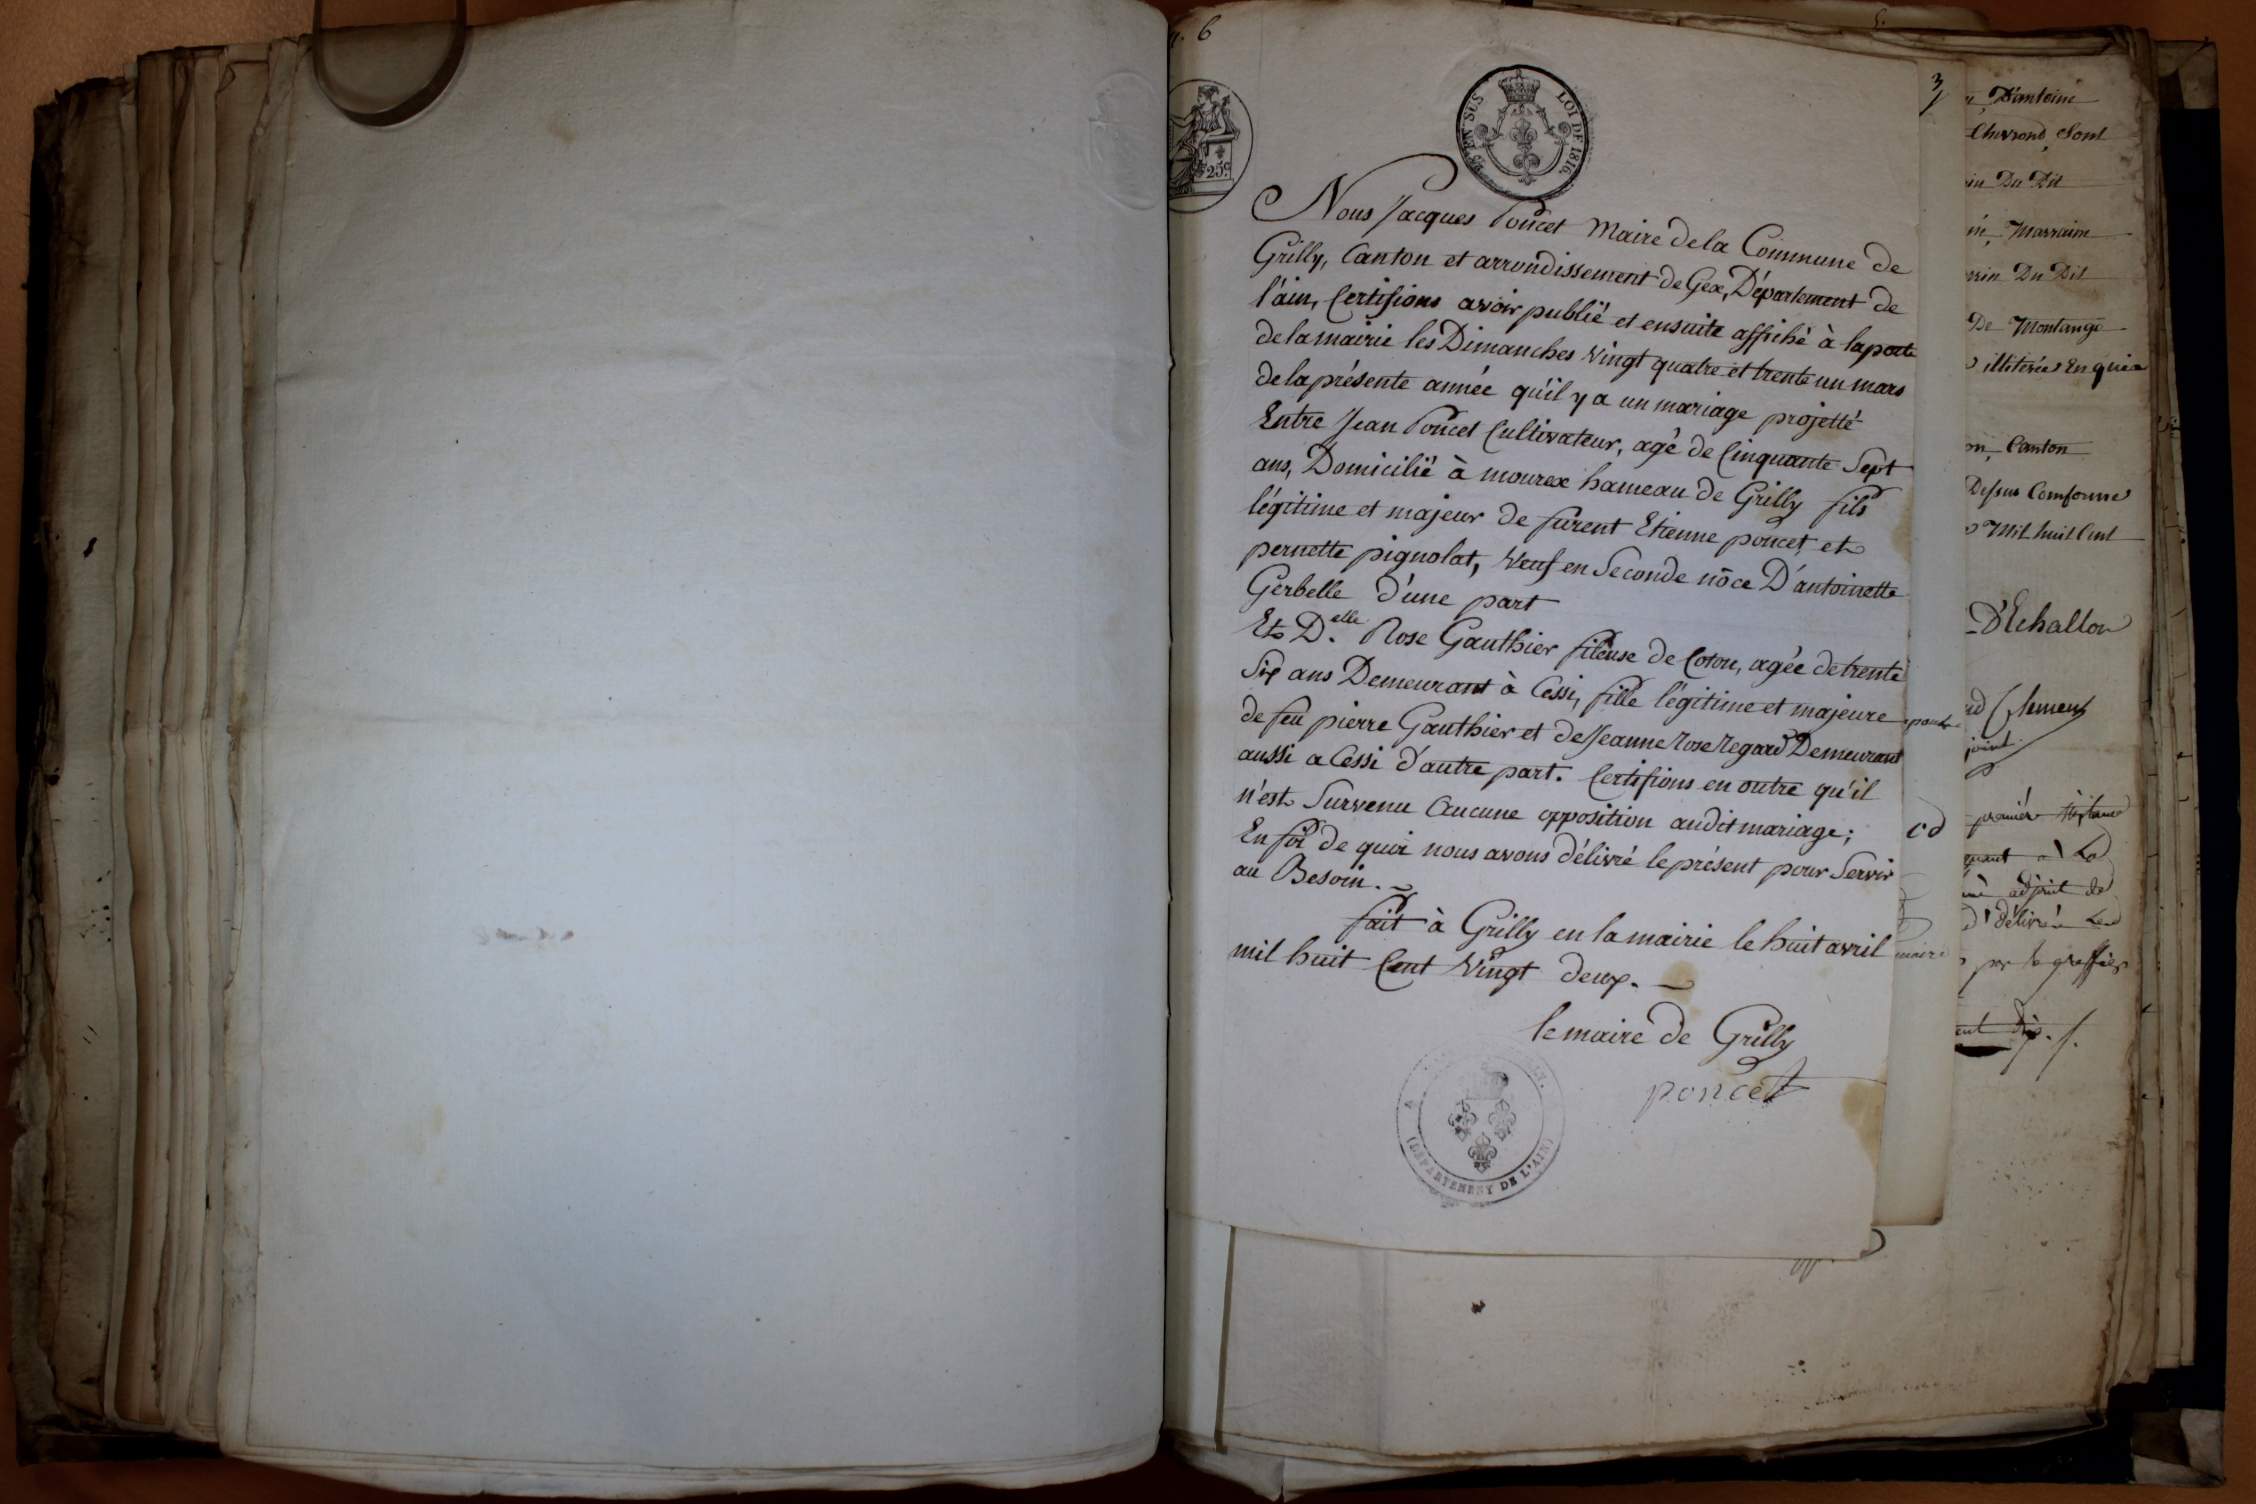 6
25 c
EN SUS LOI DE 1816.
Nous Jacques Poncet Maire de la Commune de
Grilly, Canton et arrondissement de Gex, Département de
l'ain, Certifions avoir publié et ensuite affiché à la porte
de la mairie les Dimanches Vingt quatre et trente un mars
de la présente année qu'il y a un mariage projetté
Entre Jean Poncet Cultivateur, agé de Cinquante Sept
ans, Domicilié à mourex hameau de Grilly fils
légitime et majeur de furent Etienne poncet et
pernette pignolat, Veuf en Seconde nôce D'antoinette
Gerbelle d'une part
Et D.elle Rose Gauthier fileuse de Coton, agée de trente
Six ans Demeurant à Cessi, fille légitime et majeure
de feu pierre Gauthier et de Jeanne Rose Regard Demeurant
aussi a Cessi d'autre part. Certifions en outre qu'il
n'est Survenu Aucune opposition audit mariage;
En foi de quoi nous avons délivré le présent pour Servir
au Besoin.
fait à Grilly en la mairie le huit avril
mil huit Cent Vingt deux.
le maire de Grilly
poncet
(DÉPARTEMENT DE L'AIN)
3
maire
D'antoine
Chevrond, Sont
Du Dit
Marraine
Du Dit
De Montange
illitérés Enquis
Canton
Dessus Conforme
Mil huit Cent
D'Echallon
Clement
joint
adjoint de
délivré
par le greffier